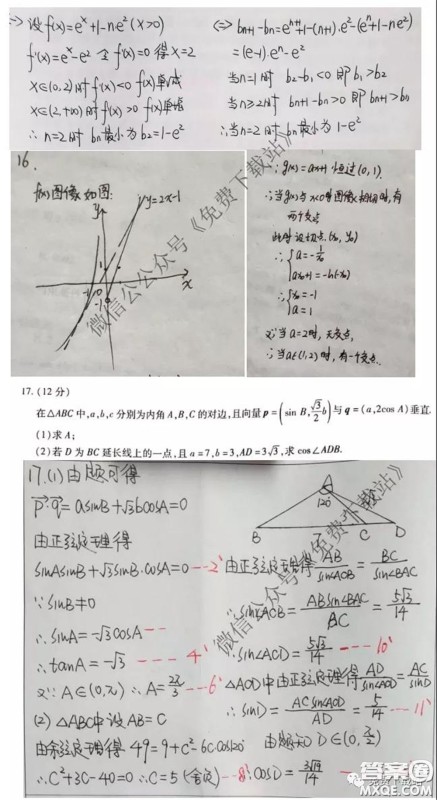 => 设f(x)=e^x+1-ne²(x>0)
f'(x)=e^x-e² 令f'(x)=0得x=2
x∈(0,2)时f'(x)<0 f(x)单减
x∈(2,+∞)时f'(x)>0 f(x)单增
∴n=2时bn最小为b2=1-e²
bn+1-bn=e^(n+1)+1-(n+1)·e²-(e^n+1-ne²)
=(e-1)·e^n-e²
当n=1时 b2-b1<0 即b1>b2
当n≥2时 bn+1-bn>0 即bn+1>bn
∴当n=2时bn最小为1-e²
16.
f(x)图像如图:
y
y=2x-1
x
∵g(x)=ax+1恒过(0,1).
∴当g(x)与x<0时图像相切时,有
两个交点
此时设切点(x₀,y₀)
∴{a=-1/x₀
ax₀+1=-ln(-x₀)
∴{x₀=-1
a=1
又∵当a=2时,无交点,
∴当a∈(1,2)时,有一个交点.
微信公众号《免费下载站》
17.(12分)
在△ABC中,a,b,c分别为内角A,B,C的对边,且向量p=(sin B,√3/2 b)与q=(a,2cos A)垂直.
(1)求A;
(2)若D为BC延长线上的一点,且a=7,b=3,AD=3√3,求cos∠ADB.
17.(1)由题可得
p·q=asinB+√3bcosA=0
由正弦定理得
sinAsinB+√3sinB·cosA=0 --- 2'
∵sinB≠0
∴sinA=-√3cosA
∴tanA=-√3 --- 4'
又∵A∈(0,π) ∴A=2π/3 --- 6'
(2)△ABC中设AB=C
由余弦定理得 49=9+c²-6c·cos120°
∴c²+3c-40=0 ∴c=5(舍负) -- 8'
A
120°
B
7
C
D
由正弦定理得AB/sin∠ACB=BC/sin∠BAC
∴sin∠ACB=ABsin∠BAC/BC=5√3/14
∴sin∠ACD=5√3/14 --- 10'
△ACD中由正弦定理得AD/sin∠ACD=AC/sinD
∴sinD=ACsin∠ACD/AD=5/14 -- 11'
由题知D∈(0,π/2)
∴cosD=3√19/14
微信公众号《免费下载站》
答案圈
MXQE.COM
免费下载站